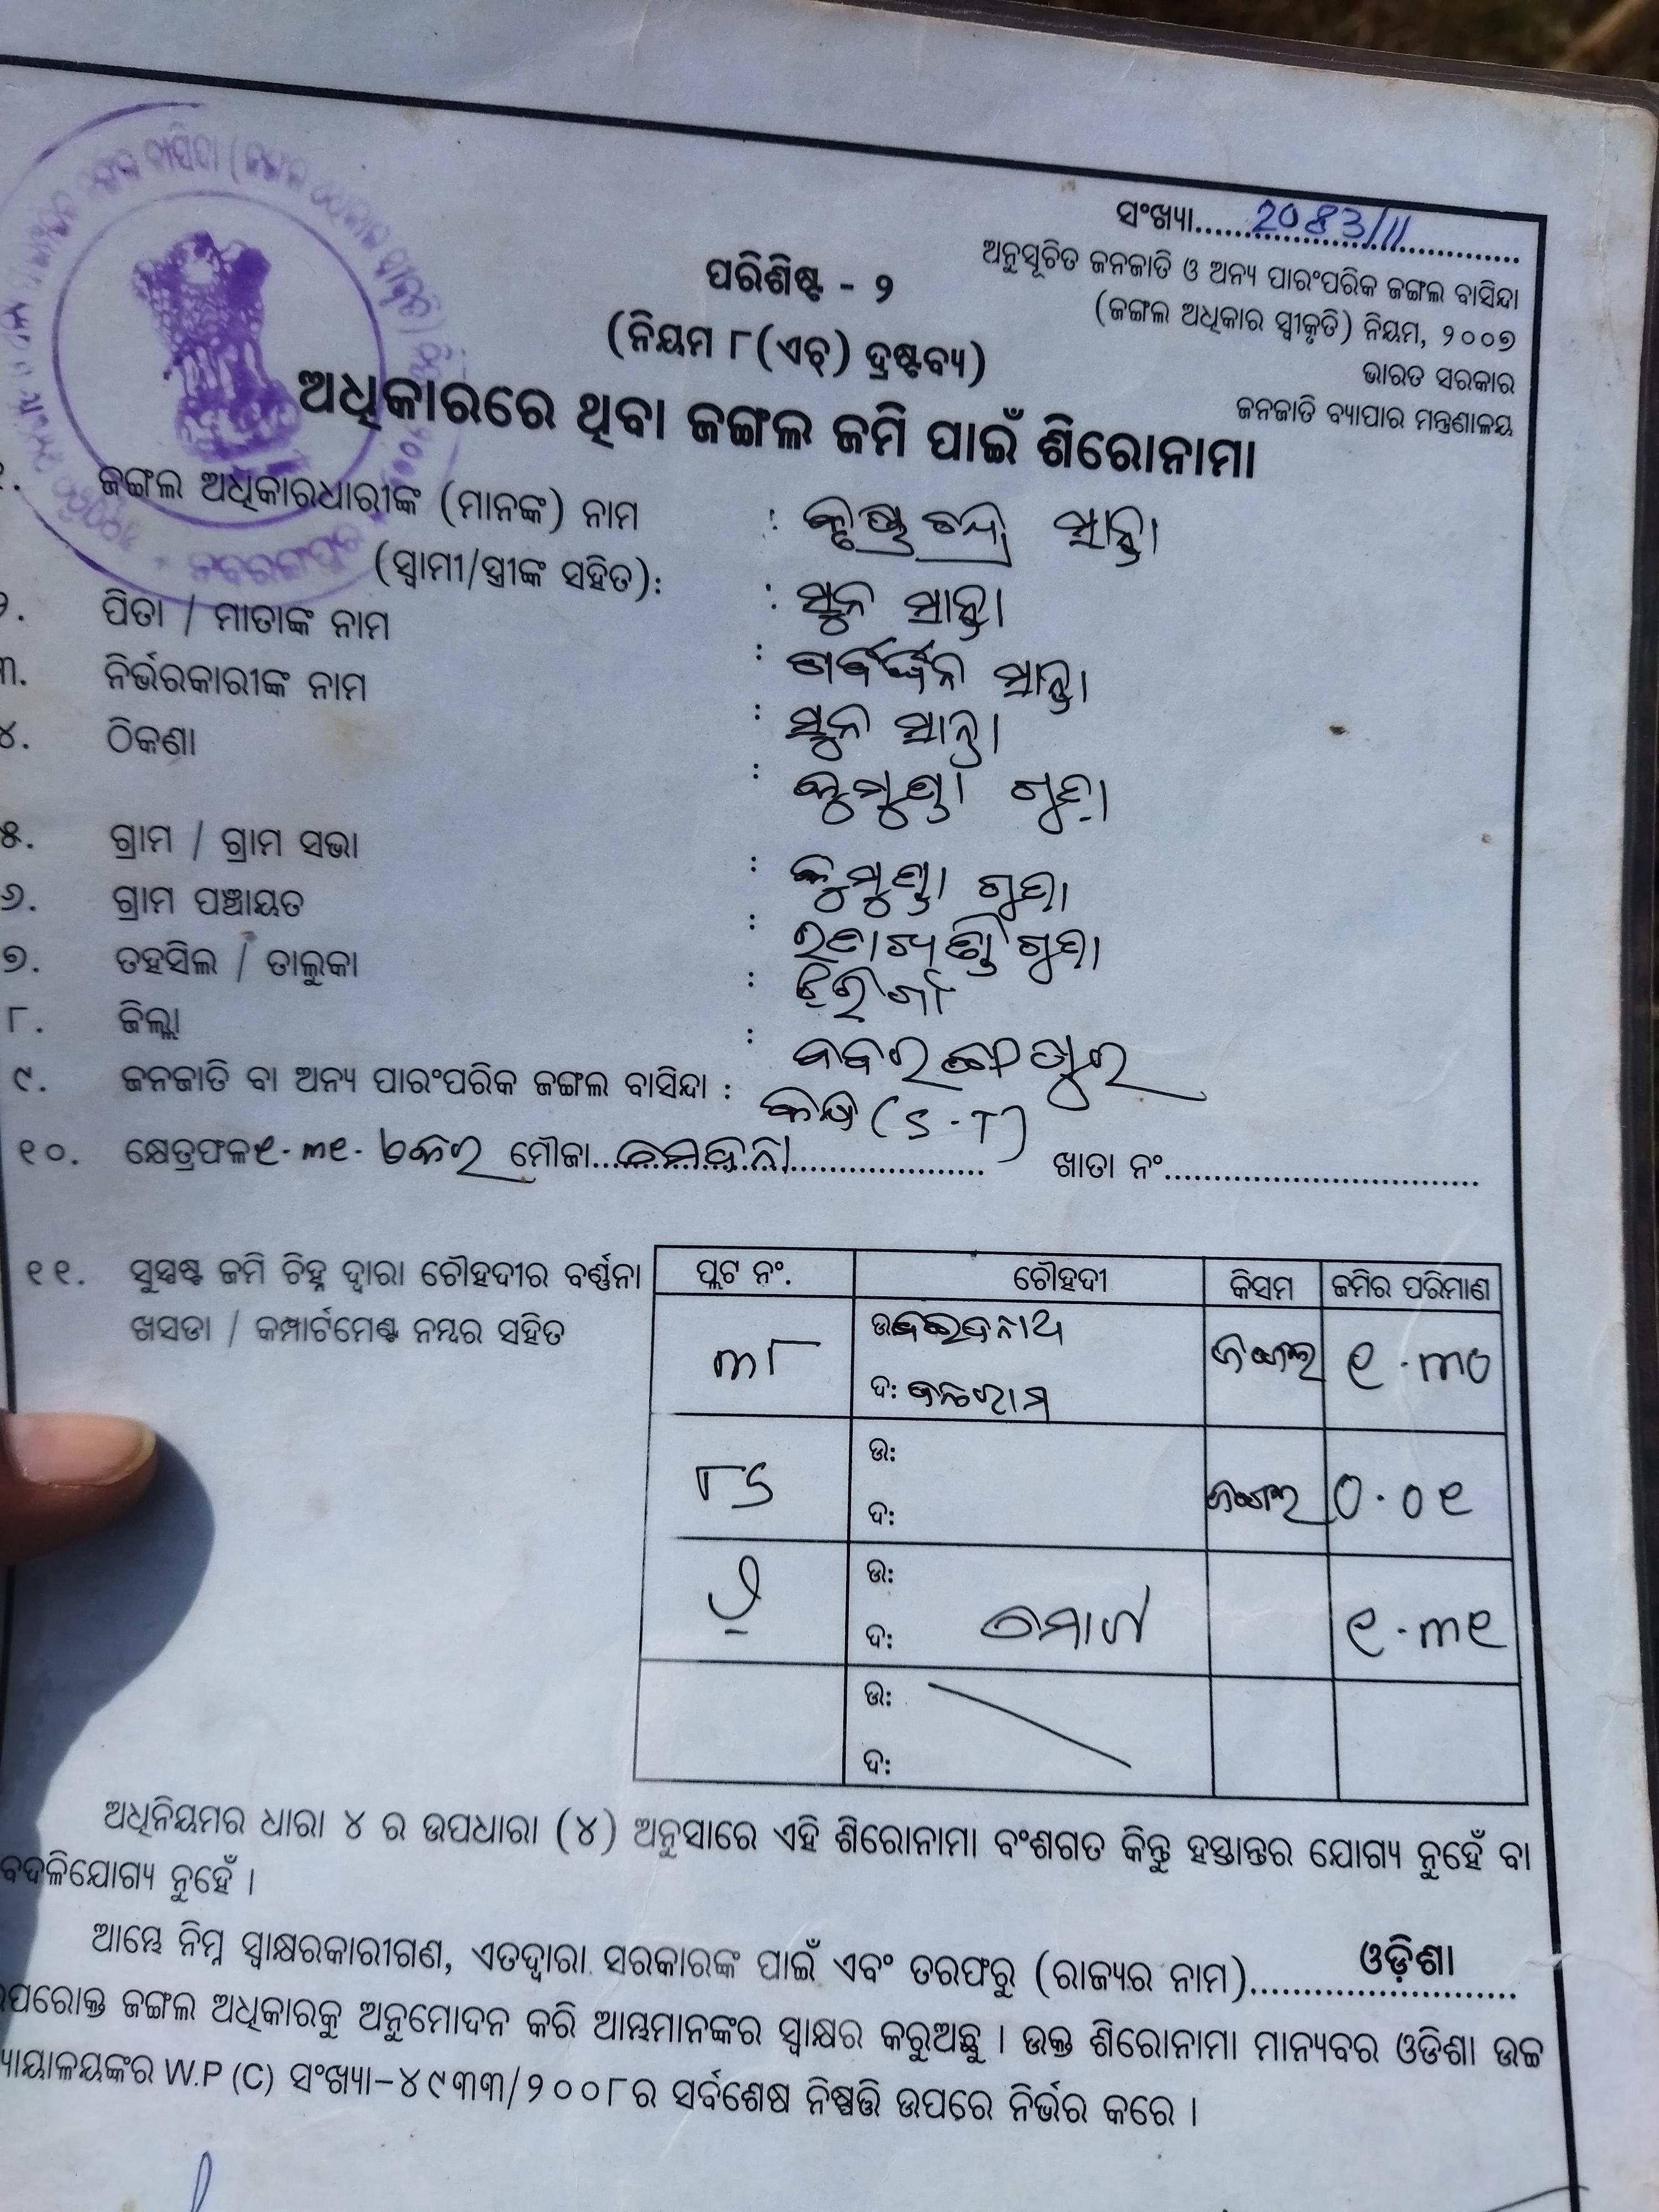 ସଂଖ୍ୟା..... 2083/11
ଅନୁସୂଚିତ ଜନଜାତି ଓ ଅନ୍ୟ ପାରଂପରିକ ଜଙ୍ଗଲ ବାସିନ୍ଦା
(ଜଙ୍ଗଲ ଅଧିକାର ସ୍ୱୀକୃତି) ନିୟମ, ୨୦୦୭
ଭାରତ ସରକାର
ଜନଜାତି ବ୍ୟାପାର ମନ୍ତ୍ରଣାଳୟ
ପରିଶିଷ୍ଟ - ୨
(ନିୟମ ୮(ଏଚ୍) ଦ୍ରଷ୍ଟବ୍ୟ)
ଅଧିକାରରେ ଥିବା ଜଙ୍ଗଲ ଜମି ପାଇଁ ଶିରୋନାମା
ଜଙ୍ଗଲ ଅଧିକାରଧାରୀଙ୍କ (ମାନଙ୍କ) ନାମ : କୃଷ୍ଣ ଚନ୍ଦ୍ର ସାନ୍ତା
(ସ୍ୱାମୀ/ସ୍ତ୍ରୀଙ୍କ ସହିତ): : ସୁନ ସାନ୍ତା
ପିତା / ମାତାଙ୍କ ନାମ : ସାନ୍ତା
୩. ନିର୍ଭରକାରୀଙ୍କ ନାମ : ସୁନ ସାନ୍ତା
୪. ଠିକଣା : କୁମୁଣ୍ଡା ଗୁଡା
୫. ଗ୍ରାମ / ଗ୍ରାମ ସଭା : କୁମୁଣ୍ଡା ଗୁଡା
୬. ଗ୍ରାମ ପଞ୍ଚାୟତ :
୭. ତହସିଲ / ତାଲୁକା :
୮. ଜିଲ୍ଲା : ନବରଙ୍ଗପୁର
୯. ଜନଜାତି ବା ଅନ୍ୟ ପାରଂପରିକ ଜଙ୍ଗଲ ବାସିନ୍ଦା : (S.T)
୧୦. କ୍ଷେତ୍ରଫଳ ୧.୩୧. ଏକର ମୌଜା..... ଖାତା ନଂ.....
୧୧. ସୁସ୍ପଷ୍ଟ ଜମି ଚିହ୍ନ ଦ୍ୱାରା ଚୌହଦୀର ବର୍ଣ୍ଣନା
ଖସଡା / କମ୍ପାର୍ଟମେଣ୍ଟ ନମ୍ବର ସହିତ
ପ୍ଲଟ ନଂ. ଚୌହଦୀ କିସମ ଜମିର ପରିମାଣ
୩୮ ଉ: ଜଙ୍ଗଲ ୧.୩୦
ଦ: ବଳରାମ
୮୬ ଉ: ଜଙ୍ଗଲ ୦.୦୧
ଦ:
୨ ଉ:
ଦ: ମୋଟ ୧.୩୧
ଉ:
ଦ:
ଅଧିନିୟମର ଧାରା ୪ ର ଉପଧାରା (୪) ଅନୁସାରେ ଏହି ଶିରୋନାମା ବଂଶଗତ କିନ୍ତୁ ହସ୍ତାନ୍ତର ଯୋଗ୍ୟ ନୁହେଁ ବା
ବଦଳିଯୋଗ୍ୟ ନୁହେଁ ।
ଆମ୍ଭେ ନିମ୍ନ ସ୍ୱାକ୍ଷରକାରୀଗଣ, ଏତଦ୍ୱାରା ସରକାରଙ୍କ ପାଇଁ ଏବଂ ତରଫରୁ (ରାଜ୍ୟର ନାମ)..... ଓଡ଼ିଶା
ଉପରୋକ୍ତ ଜଙ୍ଗଲ ଅଧିକାରକୁ ଅନୁମୋଦନ କରି ଆମ୍ଭମାନଙ୍କର ସ୍ୱାକ୍ଷର କରୁଅଛୁ । ଉକ୍ତ ଶିରୋନାମା ମାନ୍ୟବର ଓଡିଶା ଉଚ୍ଚ
ନ୍ୟାୟାଳୟଙ୍କର W.P (C) ସଂଖ୍ୟା-୪୯୩୩/୨୦୦୮ର ସର୍ବଶେଷ ନିଷ୍ପତ୍ତି ଉପରେ ନିର୍ଭର କରେ ।